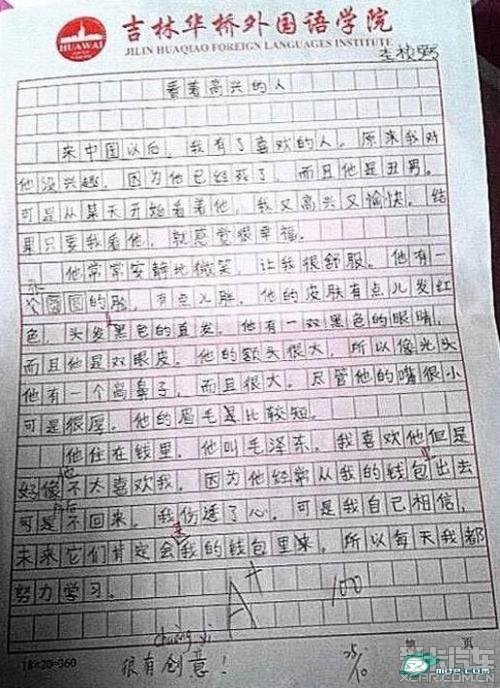 吉林华桥外国语学院
HUAWAI
JILIN HUAQIAO FOREIGN LANGUAGES INSTITUTE
看着高兴的人
来中国以后，我有了喜欢的人。原来我对
他没兴趣，因为他已经死了，而且他是丑男。
可是从某天开始看着他，我又高兴又愉快。结
果只要我看他，就感觉很幸福。
他常常安静地微笑，让我很舒服。他有一
个圆圆的脸，有点儿胖。他的皮肤有点儿发红
色，头发黑色的直发。他有一双黑色的眼睛，
而且他是双眼皮。他的额头很大，所以像光头
他有一个高鼻子，而且很大。尽管他的嘴很小
可是很厚。他的眉毛是比较短。
他住在钱里。他叫毛泽东。我喜欢他但是
好像他不太喜欢我。因为他经常从我的钱包出去
可是不回来。我伤透了心。可是我自己相信，
未来它们肯定会我的钱包里来。所以每天我都
努力学习。
A+
100
chuàng yì
很有创意！
25/10
18×20=360
第 页
爱卡汽车
XCAR.COM.CN